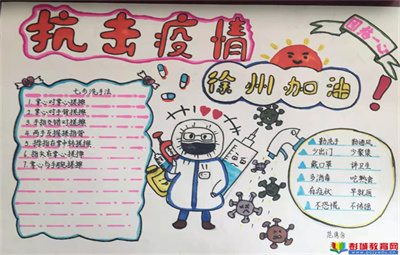 抗击疫情
团结一心
徐州加油!
七步洗手法
1、掌心对掌心搓擦
2、掌心对手背搓擦
3、手指交错对搓擦
4、两手互握搓指背
5、拇指在掌中转搓擦
6、指尖在掌心搓擦
勤洗手 勤通风
少出门 少聚集
戴口罩 讲卫生
多消毒 吃熟食
有症状 早就医
不恐慌 不传谣
彭城教育网